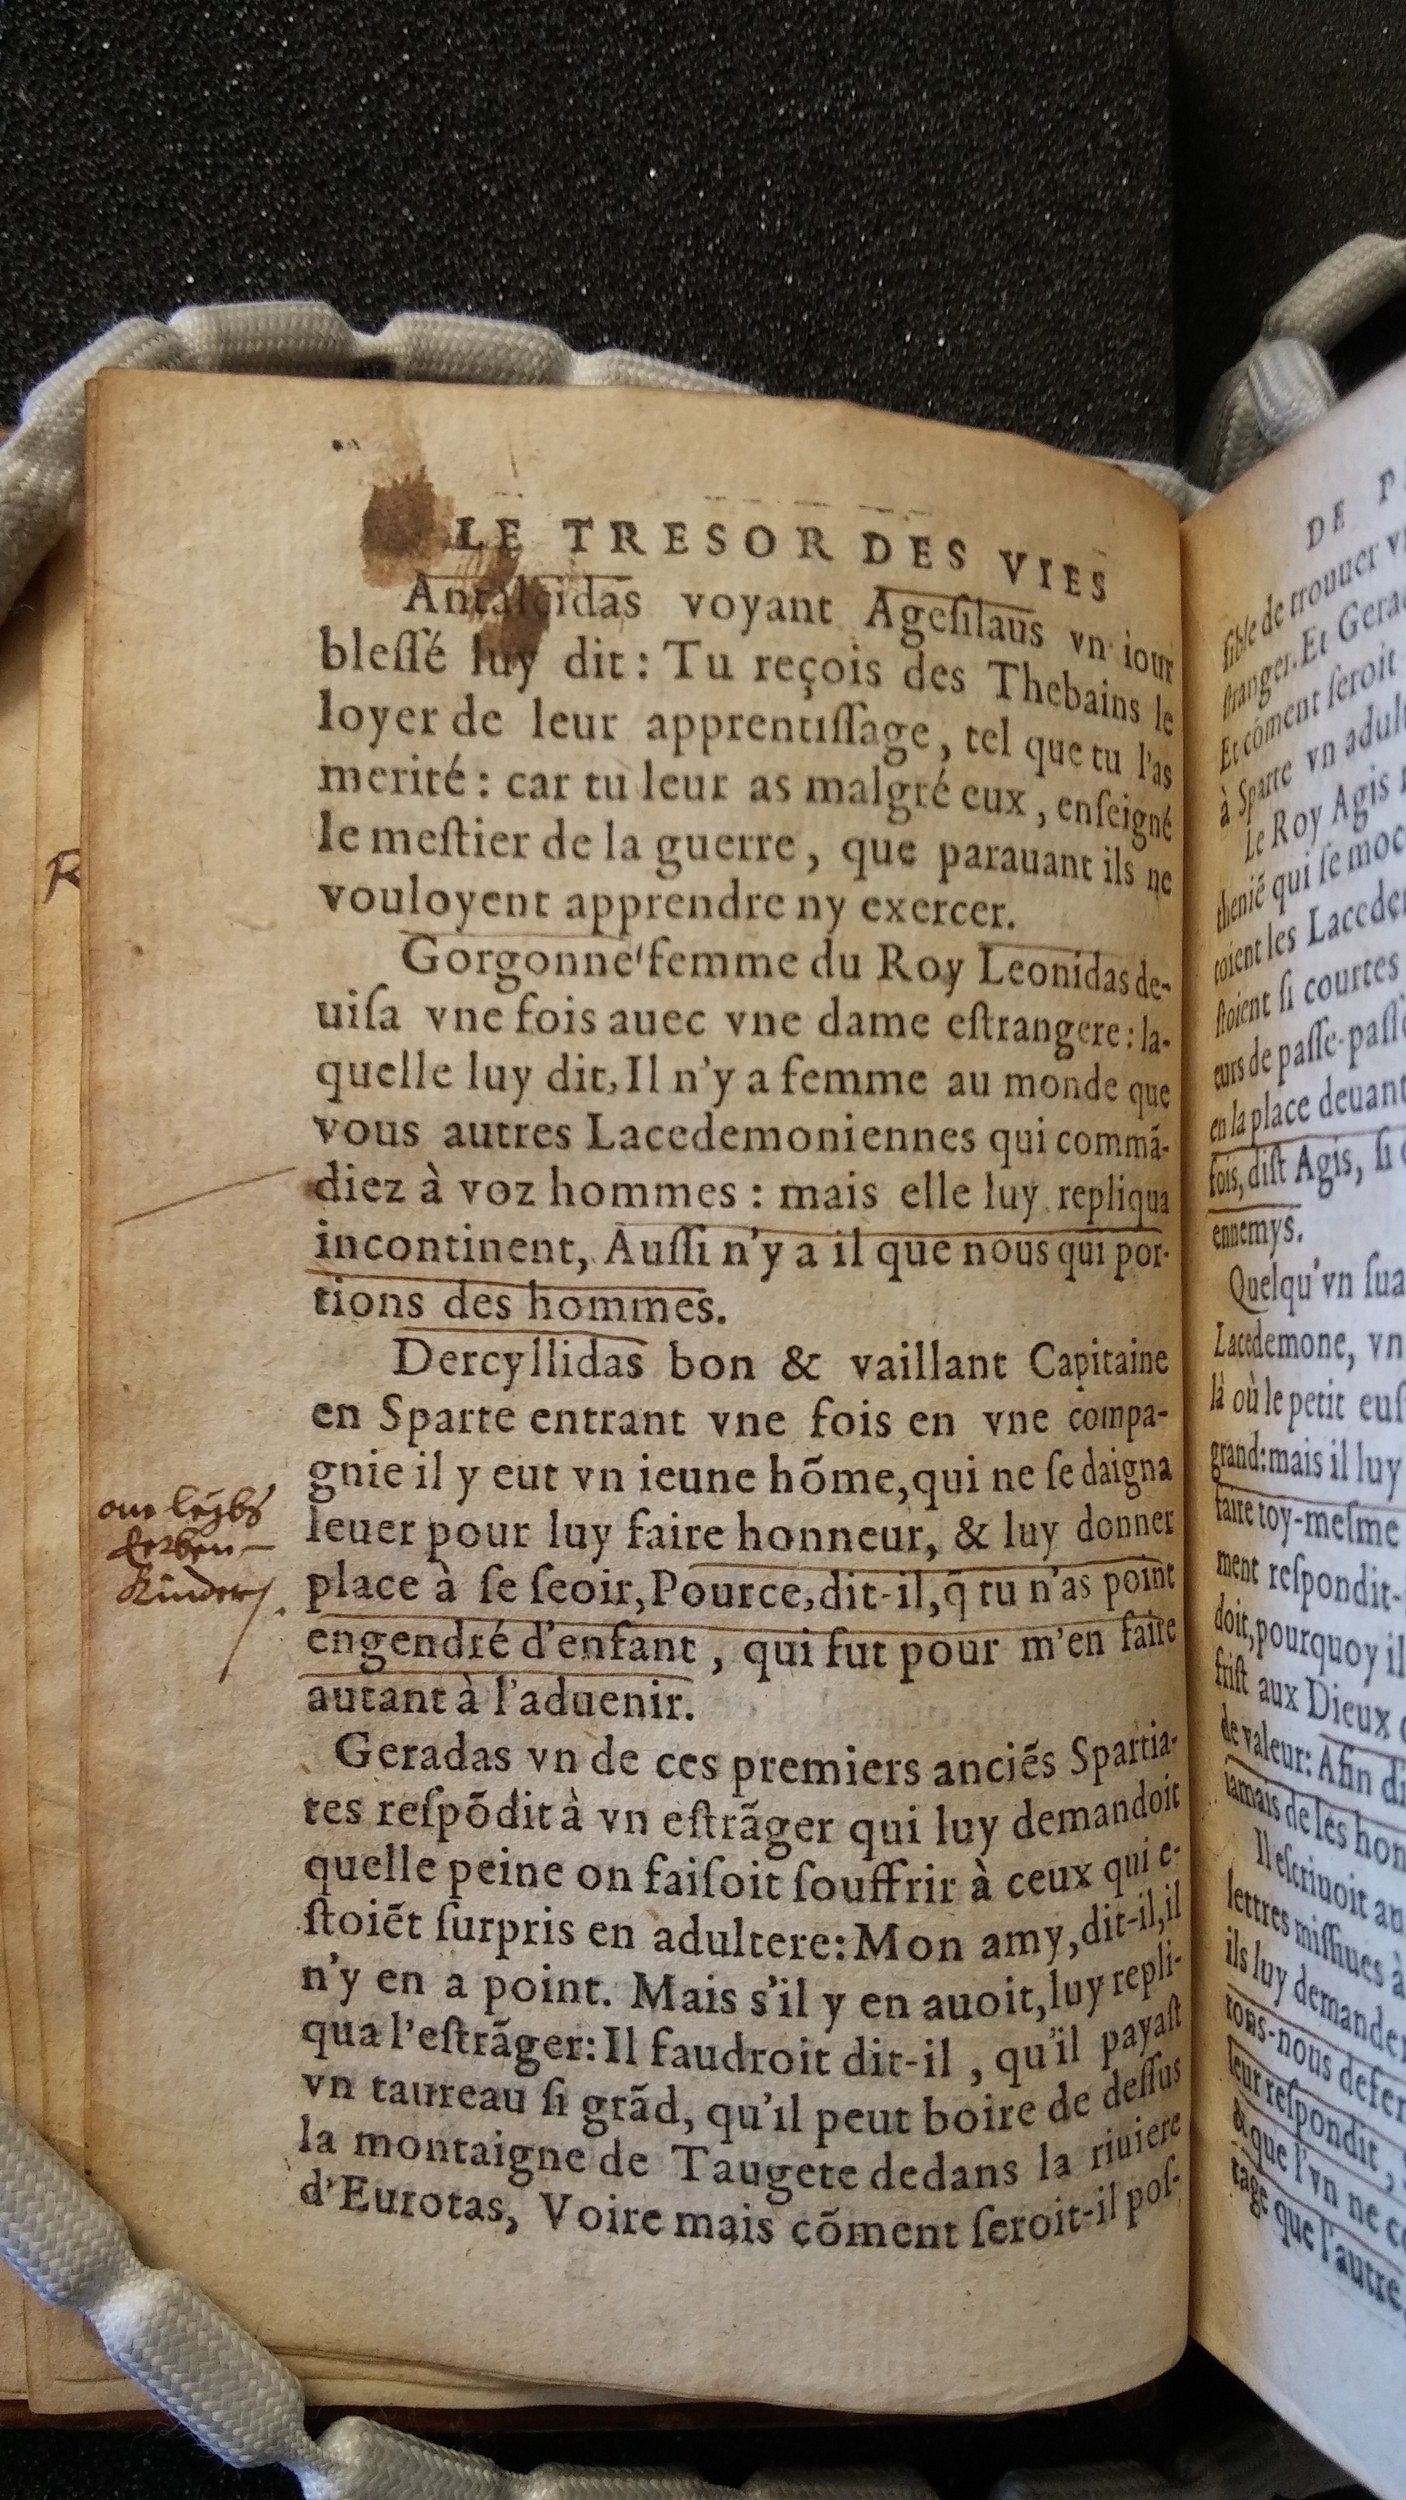 LE TRESOR DES VIES
Antalcidas voyant Ageſilaus vn iour
bleſſé luy dit : Tu reçois des Thebains le
loyer de leur apprentiſſage, tel que tu l'as
merité : car tu leur as malgré eux, enſeigné
le meſtier de la guerre, que parauant ils ne
vouloyent apprendre ny exercer.
Gorgonne femme du Roy Leonidas de-
uiſa vne fois auec vne dame eſtrangere : la-
quelle luy dit, Il n'y a femme au monde que
vous autres Lacedemoniennes qui commā-
diez à voz hommes : mais elle luy repliqua
incontinent, Auſſi n'y a il que nous qui por-
tions des hommes.
Dercyllidas bon & vaillant Capitaine
en Sparte entrant vne fois en vne compa-
gnie il y eut vn ieune hõme, qui ne ſe daigna
leuer pour luy faire honneur, & luy donner
place à ſe ſeoir, Pource, dit-il, q̃ tu n'as point
engendré d'enfant, qui fut pour m'en faire
autant à l'aduenir.
Geradas vn de ces premiers anciẽs Spartia-
tes reſpõdit à vn eſtrãger qui luy demandoit
quelle peine on faiſoit ſouffrir à ceux qui e-
ſtoiẽt ſurpris en adultere: Mon amy, dit-il, il
n'y en a point. Mais s'il y en auoit, luy repli-
qua l'eſtrãger: Il faudroit dit-il, qu'il payaſt
vn taureau ſi grãd, qu'il peut boire de deſſus
la montaigne de Taugete dedans la riuiere
d'Eurotas, Voire mais cõment ſeroit-il poſ-
leybs
erben
Kinder
R
DE
ſible de trouuer
ſtranger. Et
Et cõment ſeroit
à Sparte vn
Le Roy Agis
theniẽ qui ſe
toient les
ſtoient ſi courtes
eurs de paſſe-
en la place deuant
fois, diſt Agis, ſi
ennemys.
Quelqu'vn
Lacedemone, vn
là où le petit
grand: mais il luy
faire toy-meſme
ment reſpondit-
doit, pourquoy il
friſt aux Dieux
de valeur: Afin
iamais de les
Il eſcriuoit
lettres miſſiues à
ils luy
tons-nous
leur reſpondit,
& que l'vn ne
tage que l'autre